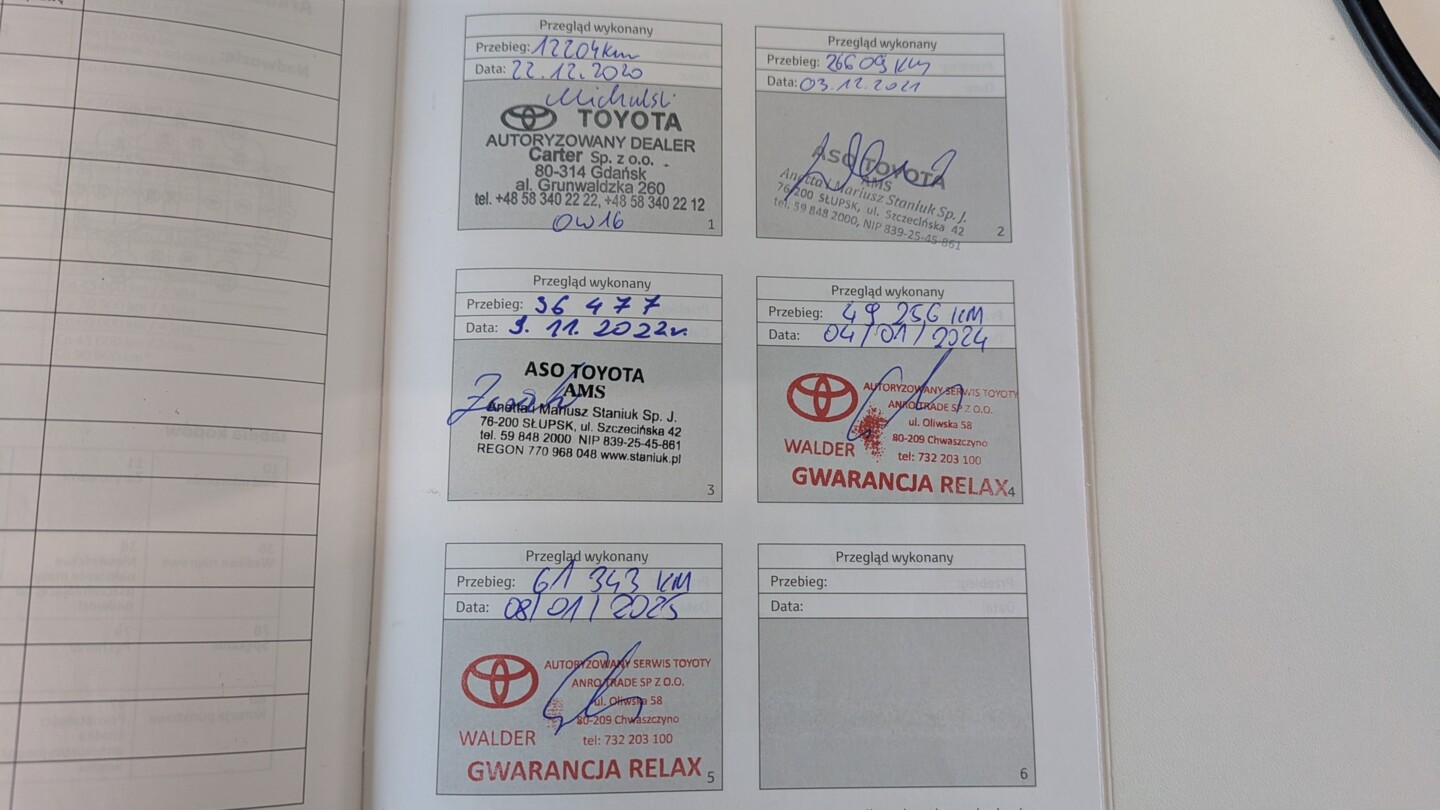 Przegląd wykonany
Przebieg: 12204km
Data: 22.12.2020
Michalski
TOYOTA
AUTORYZOWANY DEALER
Carter Sp. z o.o.
80-314 Gdańsk
al. Grunwaldzka 260
tel. +48 58 340 22 22, +48 58 340 22 12
OW16
1
Przegląd wykonany
Przebieg: 26609 KM
Data: 03.12.2021
ASO TOYOTA
AMS
Anetta i Mariusz Staniuk Sp. J.
76-200 SŁUPSK, ul. Szczecińska 42
tel. 59 848 2000, NIP 839-25-45-861
2
Przegląd wykonany
Przebieg: 36 477
Data: 9. 11. 2022r.
ASO TOYOTA
AMS
Anetta i Mariusz Staniuk Sp. J.
76-200 SŁUPSK, ul. Szczecińska 42
tel. 59 848 2000 NIP 839-25-45-861
REGON 770 968 048 www.staniuk.pl
3
Przegląd wykonany
Przebieg: 49 256 KM
Data: 04/01/2024
AUTORYZOWANY SERWIS TOYOTY
ANRO TRADE SP Z O.O.
ul. Oliwska 58
80-209 Chwaszczyno
tel: 732 203 100
WALDER
GWARANCJA RELAX
4
Przegląd wykonany
Przebieg: 61 343 KM
Data: 08/01/2025
AUTORYZOWANY SERWIS TOYOTY
ANRO TRADE SP Z O.O.
ul. Oliwska 58
80-209 Chwaszczyno
tel: 732 203 100
WALDER
GWARANCJA RELAX
5
Przegląd wykonany
Przebieg:
Data:
6